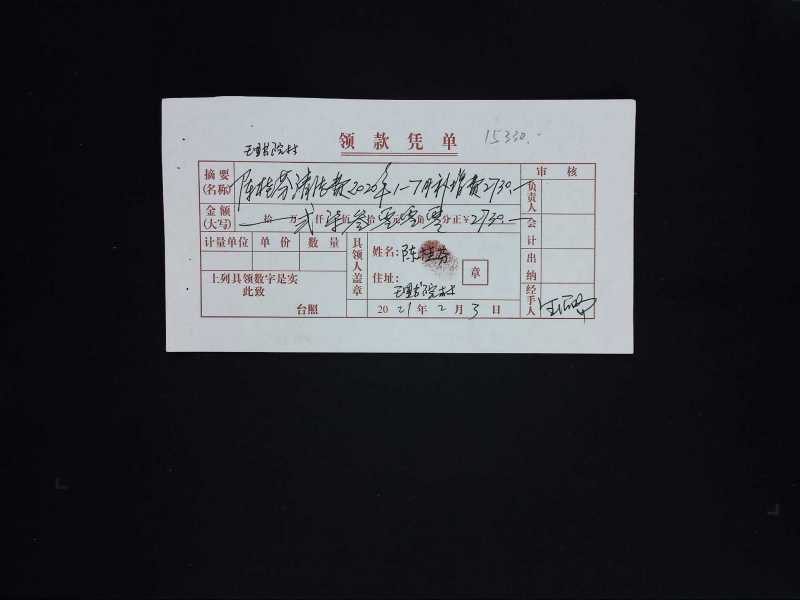 领款凭单 15330.-
书院村
摘要(名称) 陈桂芬清洁费2020年1-7月补增费2730-
金额(大写) 拾 万 贰仟 柒佰 叁拾 零元 零角 零分正¥2730-
计量单位 单价 数量
上列具领数字是实
此致
台照
具领人盖章
姓名:陈桂芬
住址:书院村
章
2021年2月3日
审核
负责人
会计
出纳
经手人